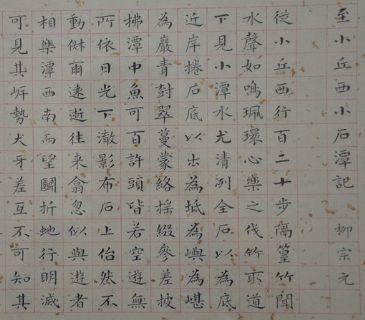 至小丘西小石潭記 柳宗元
從小丘西行百二十步隔篁竹聞
水聲如鳴珮環心樂之伐竹取道
下見小潭水尤清冽全石以為底
近岸捲石底以出為坻為嶼為嵁
為巖青封翠蔓蒙絡搖綴參差披
拂潭中魚可百許頭皆若空遊無
所依日光下澈影布石上佁然不
動俶爾遠逝往來翕忽似與遊者
相樂潭西南而望鬭折虵行明滅
可見其岸勢犬牙差互不可知其